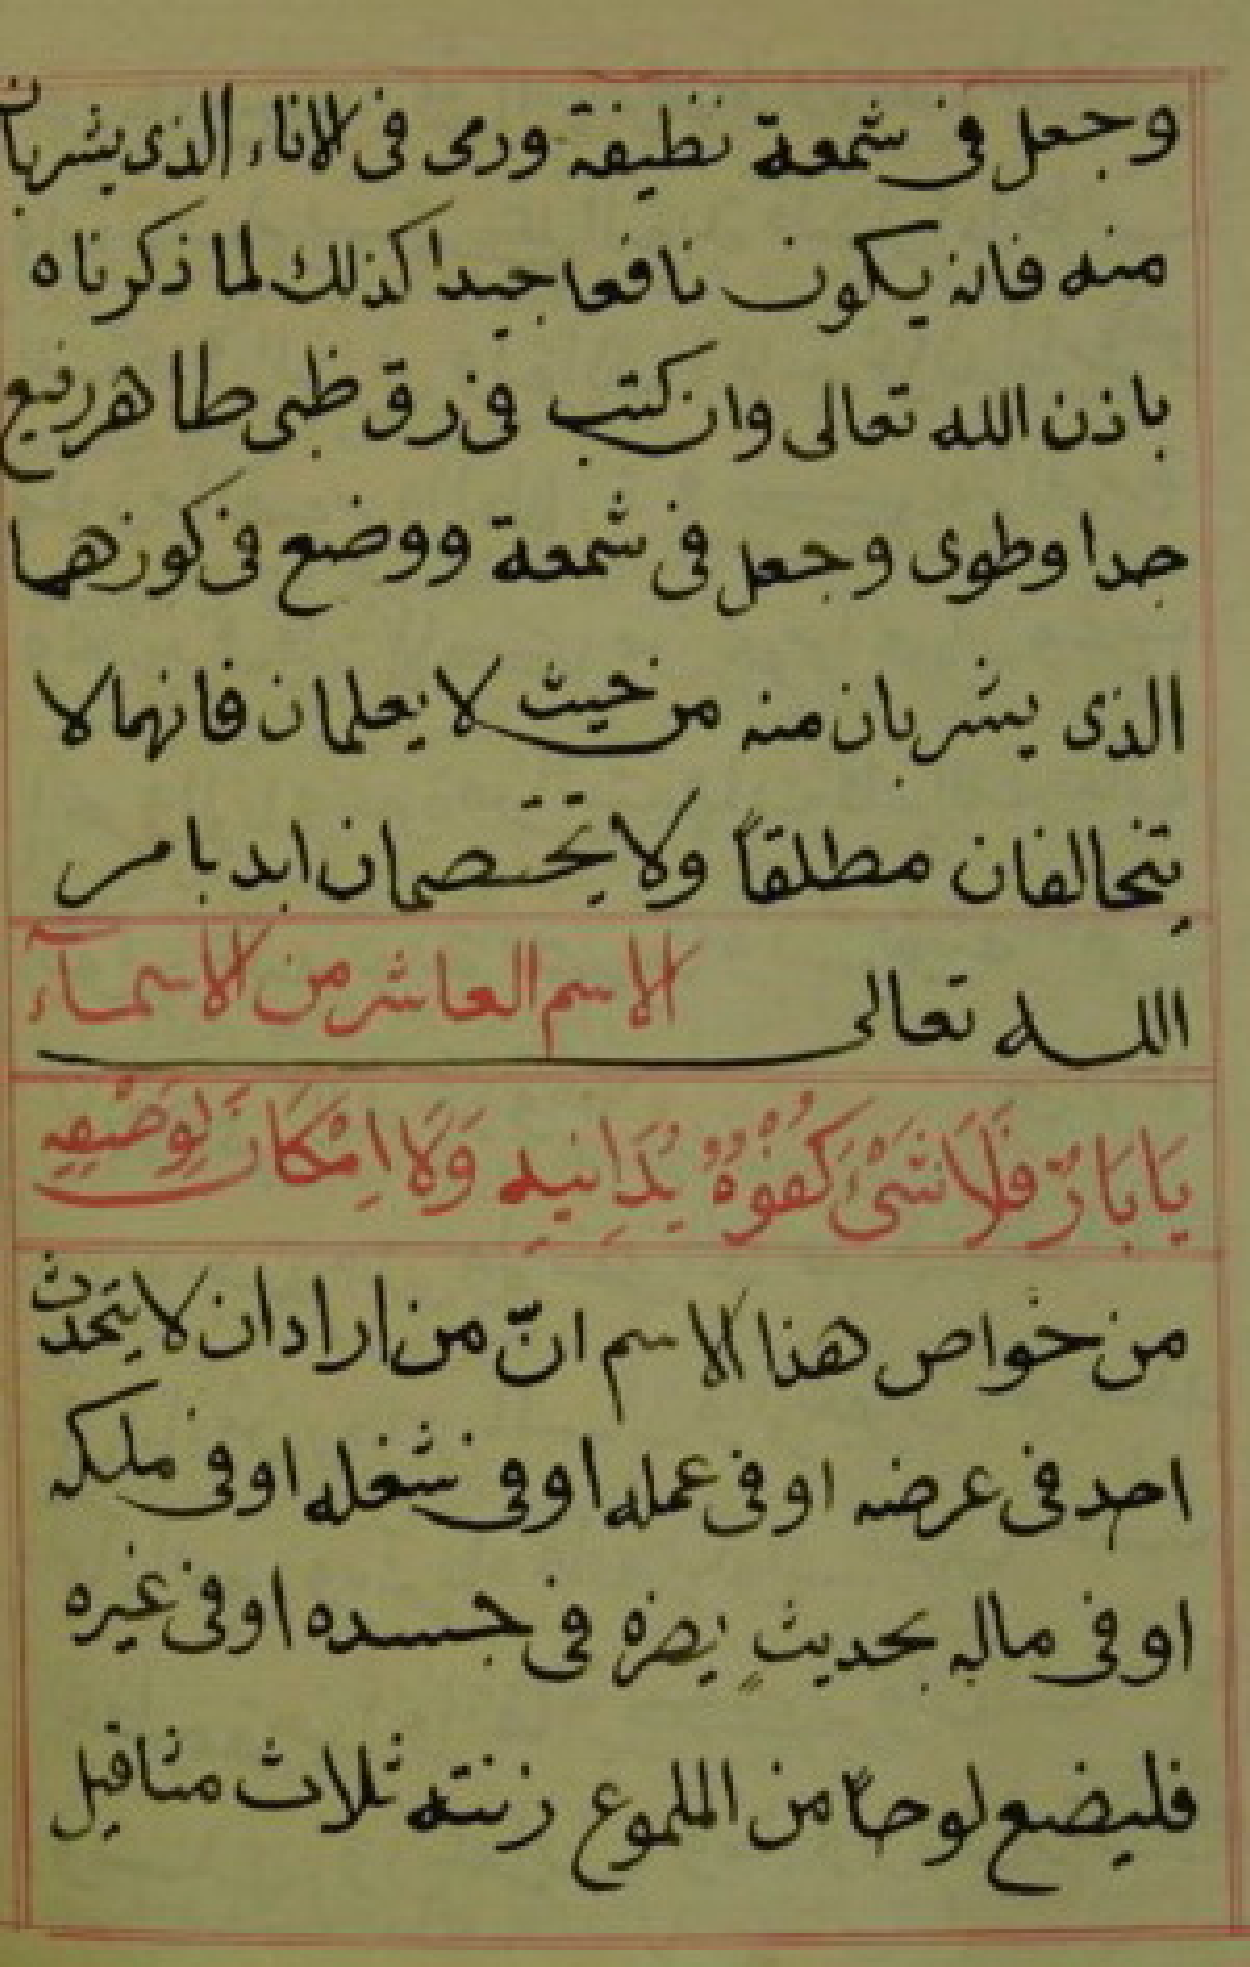 وجعل في شمعة نظيفة ورمى فى الاناء الذى يشربان
منه فانه يكون نافعا جيدا كذلك لما ذكرناه
باذن الله تعالى وان كتب في رق ظبى طاهر رفيع
جدا وطوى وجعل فى شمعة ووضع فى كوزهما
الذى يشربان منه من حيث لا يعلمان فانهما لا
يتخالفان مطلقاً ولا يختصمان ابد بامر
الله تعالى الاسم العاشر من الاسمآء
يَا بَارُّ فَلَا شَىْءَ كُفُوُهُ يُدَانِيهِ وَلَا اِمْكَانَ لِوَصْفِهِ
من خواص هذا الاسم انّ من اراد ان لا يتحدث
احد فى عرضه او فى عمله او فى شغله او فى ملكه
او فى ماله بحديثٍ يضره فى جسده او فى غيره
فليضع لوحاً من الملموع زنته ثلاث مثاقيل